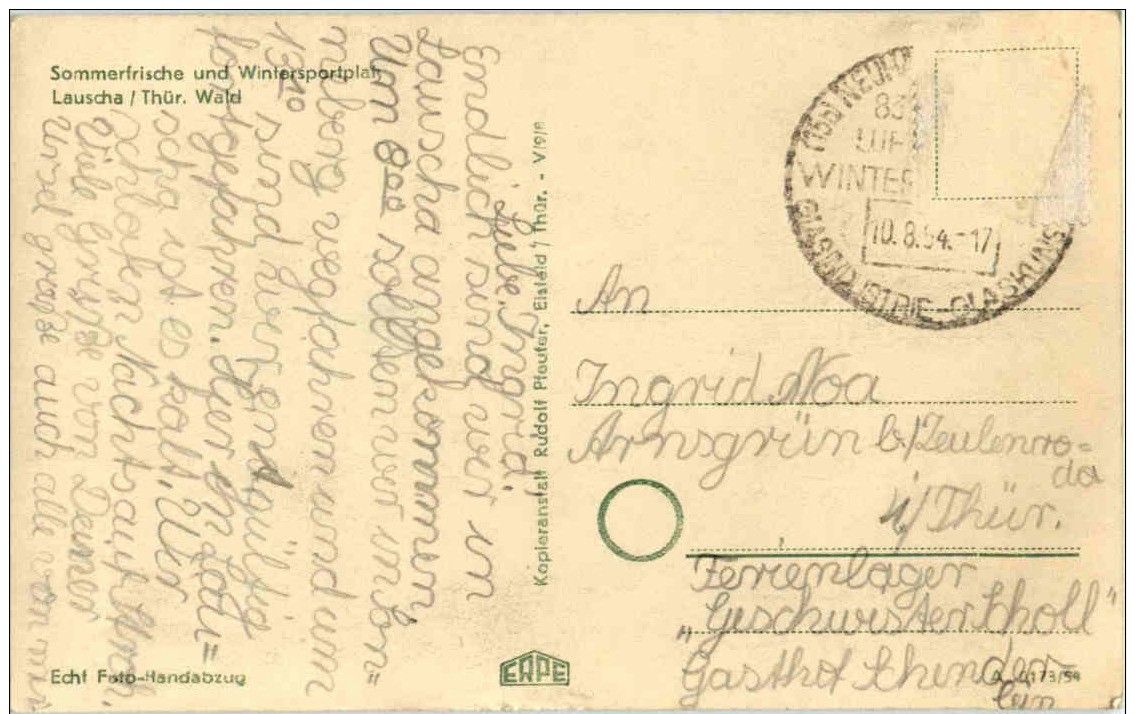 Sommerfrische und Wintersportplatz
Lauscha / Thür. Wald
Liebe Ingrid!
Endlich sind wir in
Lauscha angekommen
Um 8oo sollten wir in Sön"
melberg wegfahren und um
13¹⁰ sind wir endgültig
fortgefahren. Hier in Lau"
scha ist es kalt. Wir
schlofen
Viele Grüße von Deiner
Ursel grüße auch alle von mir
Kopieranstalt Rudolf Pfeufer, Eisfeld / Thür. - V/9/8
(15a) NEUH
83
LUF
WINTER
10.8.54.-17
GLASINDUSTRIE-GLASKUNS
An
Ingrid Noa
Arnsgrün b/Zeulenro=
da
i/Thür.
Ferienlager
„Geschwister Scholl"
Gasthof
Echt Foto-Handabzug
ERPE
A 0173/54